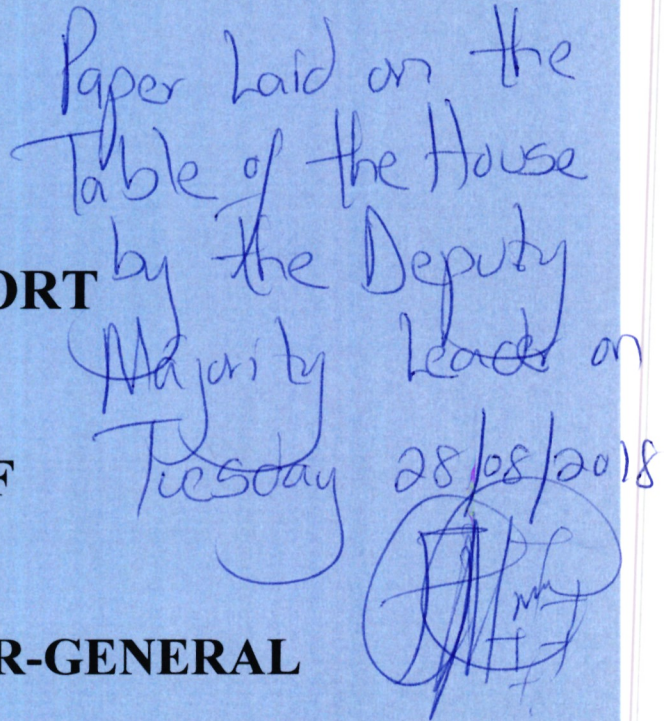 Paper Laid on the
Table of the House
ORT by the Deputy
Majority Leader on
F Tuesday 28/08/2018
R-GENERAL